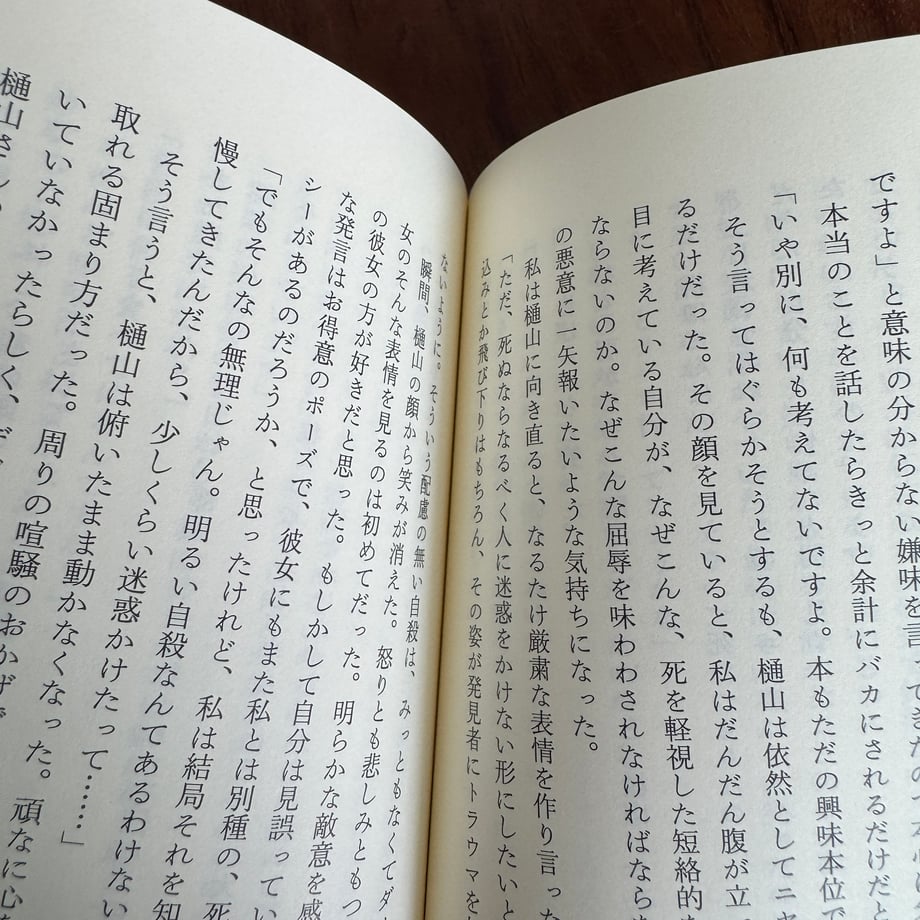 ですよ」と意味の分からない嫌味を言ってきた
本当のことを話したらきっと余計にバカにされるだけだと
「いや別に、何も考えてないですよ。本もただの興味本位で
そう言ってはぐらかそうとするも、樋山は依然としてニ
るだけだった。その顔を見ていると、私はだんだん腹が立
目に考えている自分が、なぜこんな、死を軽視した短絡的
ならないのか。なぜこんな屈辱を味わわされなければなら
の悪意に一矢報いたいような気持ちになった。
私は樋山に向き直ると、なるたけ厳粛な表情を作り言った
「ただ、死ぬならなるべく人に迷惑をかけない形にしたいと
込みとか飛び下りはもちろん、その姿が発見者にトラウマを
ないように。そういう配慮の無い自殺は、みっともなくてダ
瞬間、樋山の顔から笑みが消えた。怒りとも悲しみともつ
女のそんな表情を見るのは初めてだった。明らかな敵意を感
の彼女の方が好きだと思った。もしかして自分は見誤ってい
な発言はお得意のポーズで、彼女にもまた私とは別種の、死
シーがあるのだろうか、と思ったけれど、私は結局それを知
「でもそんなの無理じゃん。明るい自殺なんてあるわけない
慢してきたんだから、少しくらい迷惑かけたって……」
そう言うと、樋山は俯いたまま動かなくなった。頑なに心
取れる固まり方だった。周りの喧騒のおかげで
いていなかったらしく、
樋山さん